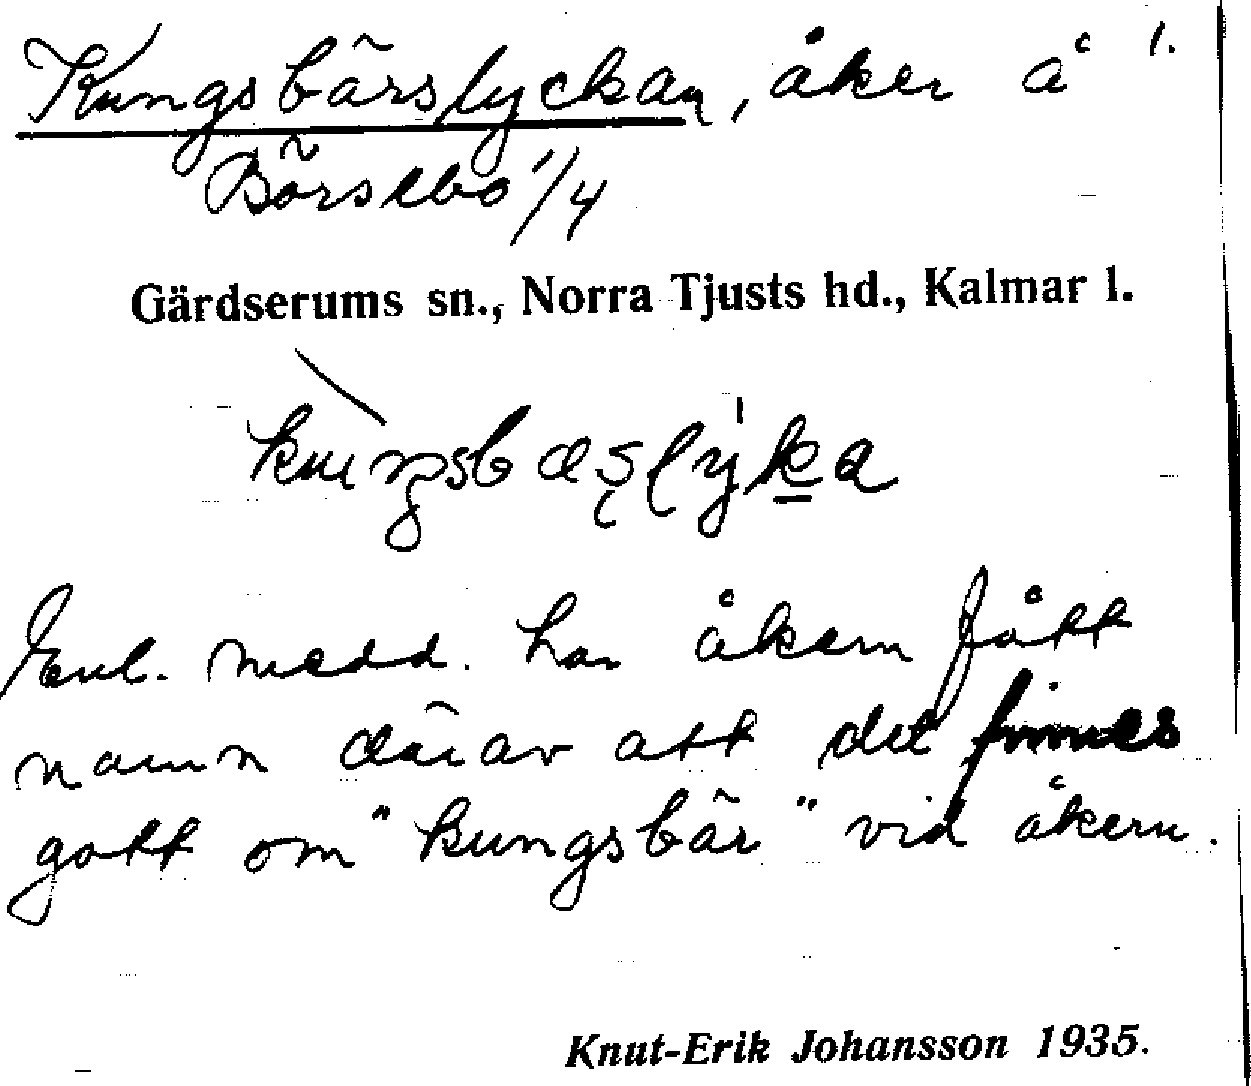 Kungsbärslyckan, åker å 1.
Börsebo 1/4
Gärdserums sn., Norra Tjusts hd., Kalmar l.
Enl. medd. har åkern fått
namn därav att det finnes
gott om "kungsbär" vid åkern.
Knut-Erik Johansson 1935.